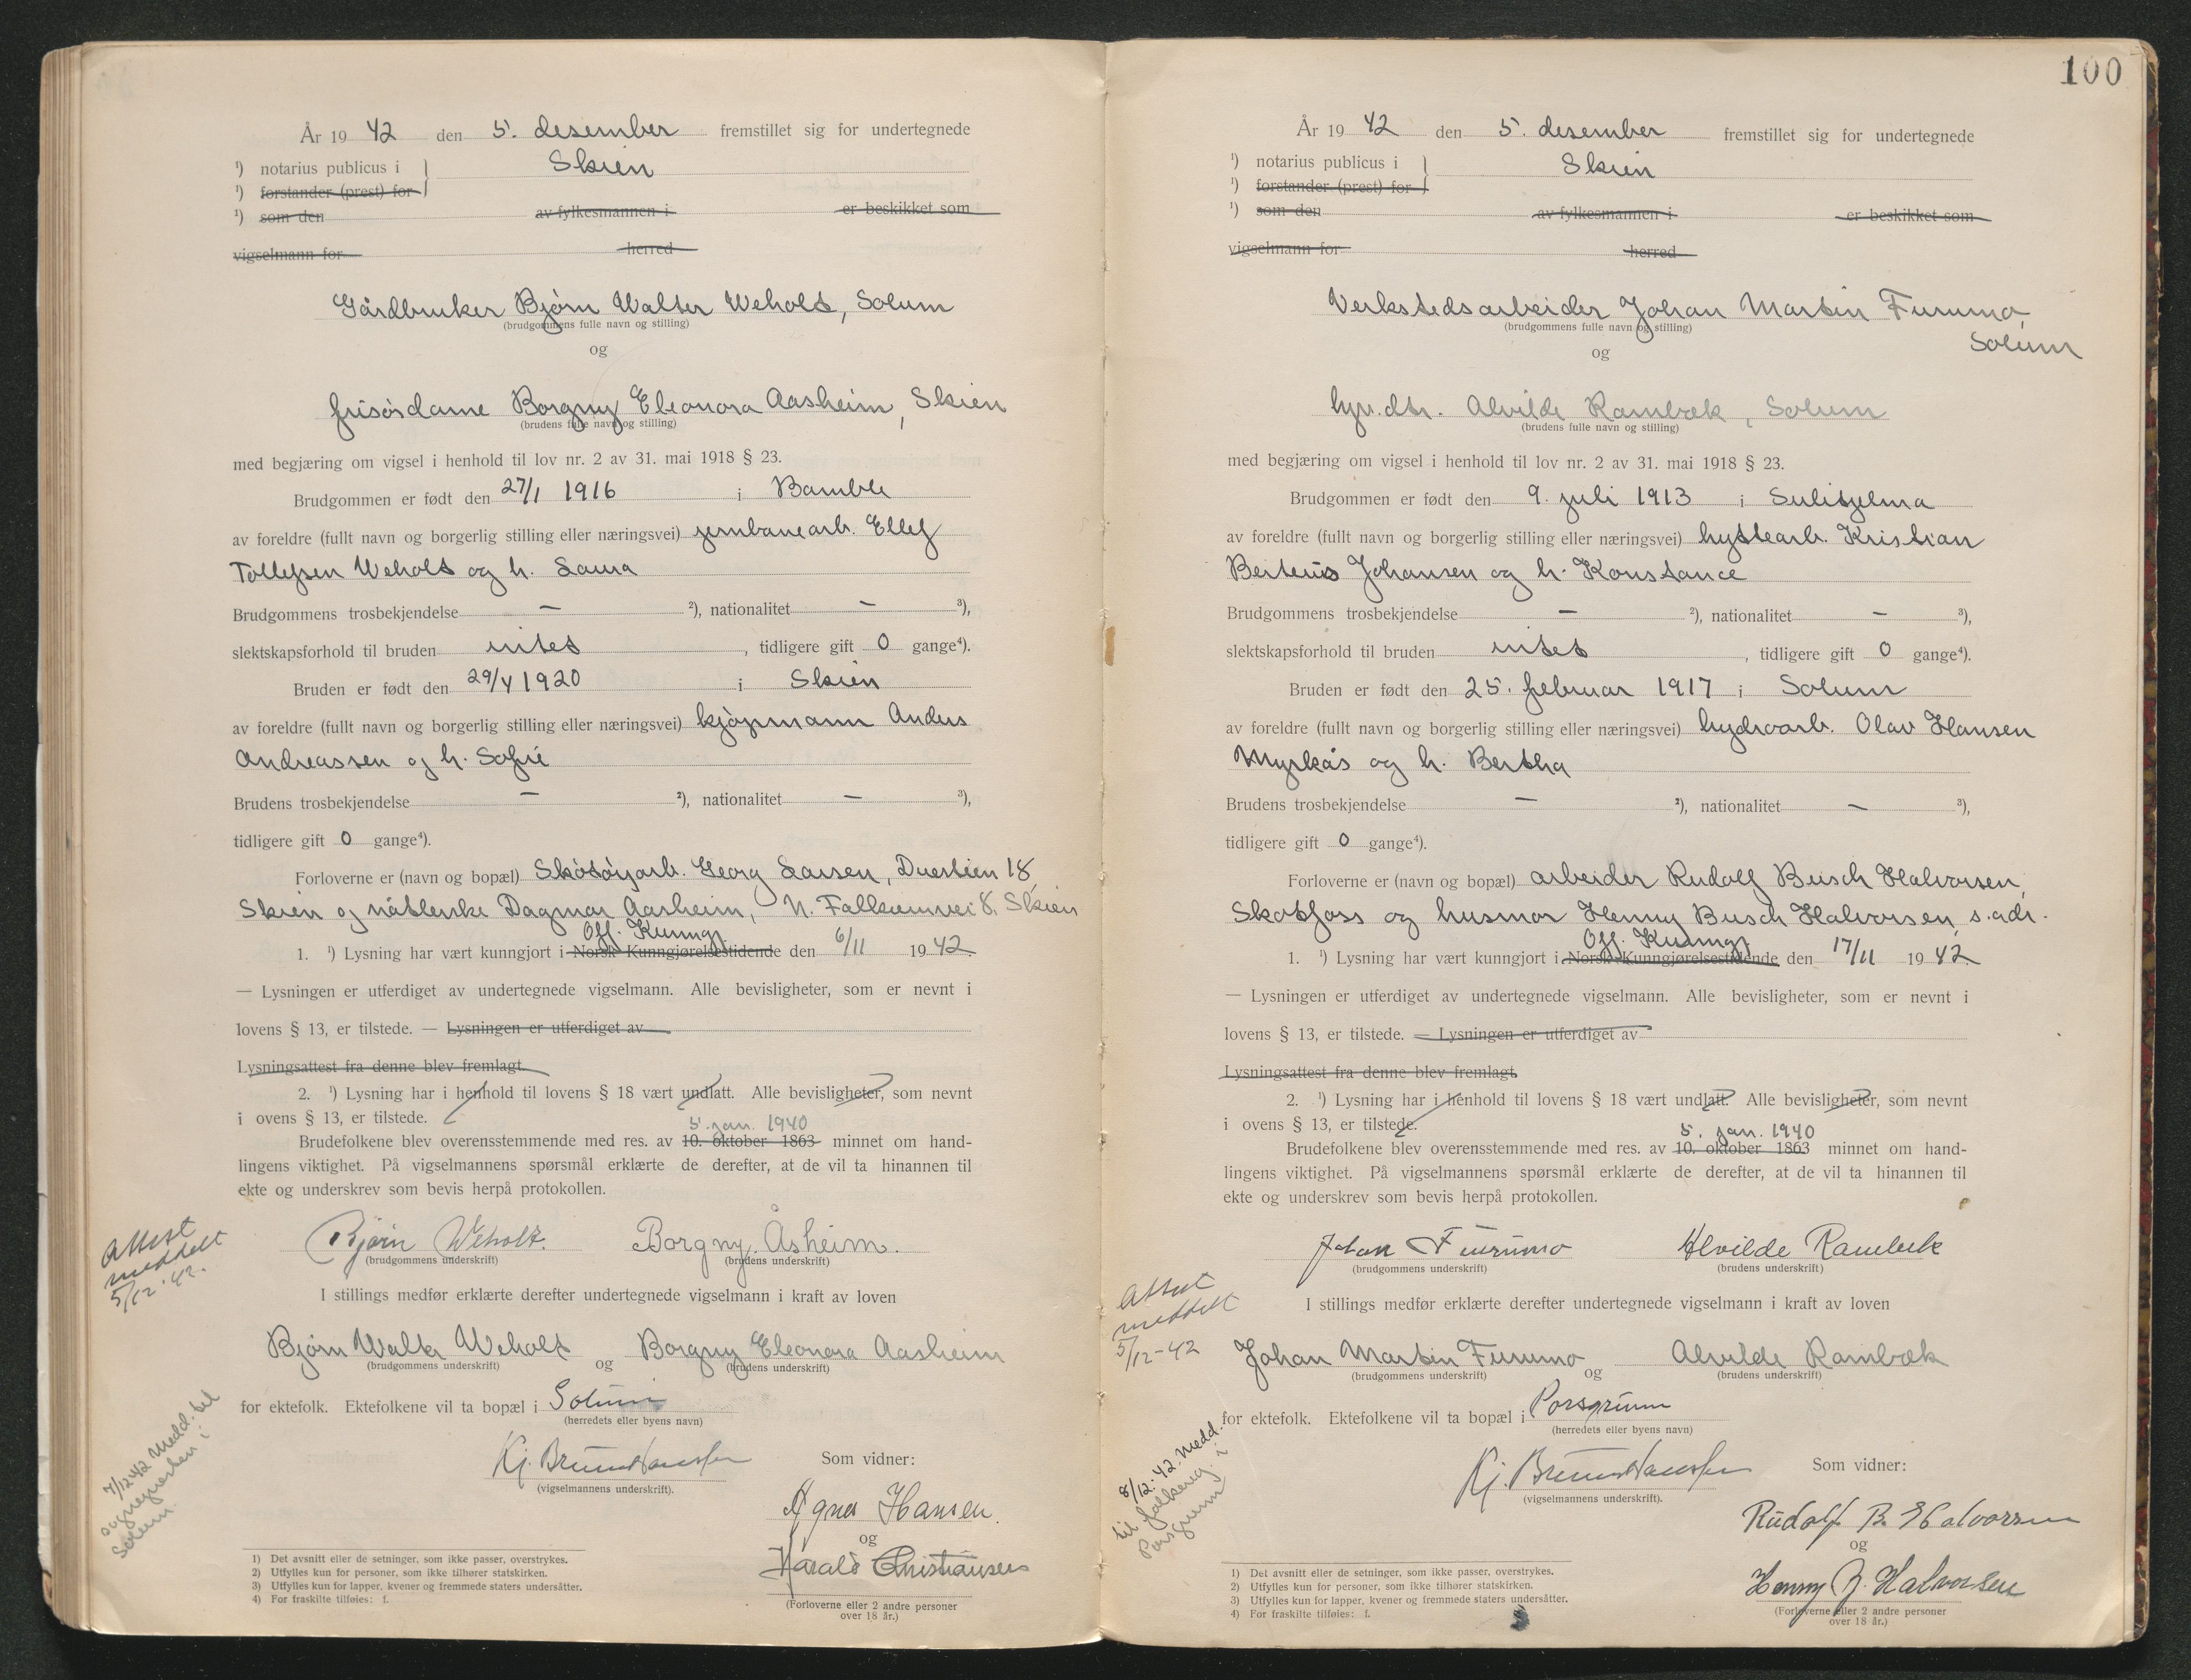 År 19 42 den 5. desember fremstillet sig for undertegnede
¹) notarius publicus i } Skien
¹) forstander (prest) for
¹) som den av fylkesmannen i er beskikket som
vigselmann for herred
Gårdbruker Bjørn Walter Weholt, Solum
(brudgommens fulle navn og stilling)
og
frisørdame Borgny Eleonora Aasheim, Skien
(brudens fulle navn og stilling)
med begjæring om vigsel i henhold til lov nr. 2 av 31. mai 1918 § 23.
Brudgommen er født den 27/1 1916 i Bamble
av foreldre (fullt navn og borgerlig stilling eller næringsvei) jernbanearb. Ellef
Tollefsen Weholt og h. Laura
Brudgommens trosbekjendelse – ²), nationalitet – ³),
slektskapsforhold til bruden intet, tidligere gift 0 gange⁴).
Bruden er født den 29/4 1920 i Skien
av foreldre (fullt navn og borgerlig stilling eller næringsvei) kjøpmann Anders
Andreassen og h. Sofie
Brudens trosbekjendelse – ²), nationalitet – ³),
tidligere gift 0 gange⁴).
Forloverne er (navn og bopæl) Skotøyarb. Georg Larsen, Duestien 18,
Skien og nåtlerske Dagmar Aasheim, N. Falkumvei 8, Skien
Off. Kunngj.
1. ¹) Lysning har vært kunngjort i Norsk Kunngjørelsestidende den 6/11 19 42.
— Lysningen er utferdiget av undertegnede vigselmann. Alle bevisligheter, som er nevnt i
lovens § 13, er tilstede. — Lysningen er utferdiget av
Lysningsattest fra denne blev fremlagt.
2. ¹) Lysning har i henhold til lovens § 18 vært undlatt. Alle bevisligheter, som nevnt
i ovens § 13, er tilstede.
5. jan. 1940
Brudefolkene blev overensstemmende med res. av 10. oktober 1863 minnet om hand-
lingens viktighet. På vigselmannens spørsmål erklærte de derefter, at de vil ta hinannen til
ekte og underskrev som bevis herpå protokollen.
Attest
meddelt
5/12 '42.
Bjørn Weholt. Borgny. Åsheim.
(brudgommens underskrift) (brudens underskrift)
I stillings medfør erklærte derefter undertegnede vigselmann i kraft av loven
Bjørn Walter Weholt og Borgny Eleonora Aasheim
(brudgommens underskrift) (brudens underskrift)
for ektefolk. Ektefolkene vil ta bopæl i Solum
(herredets eller byens navn)
7/12-42 Medd. til
sognepresten i
Solum.
Kj. Bruun Hanssen
(vigselmannens underskrift).
Som vidner:
Agnes Hansen.
og
Harald Christiansen
(Forloverne eller 2 andre personer
over 18 år.)
1) Det avsnitt eller de setninger, som ikke passer, overstrykes.
2) Utfylles kun for personer, som ikke tilhører statskirken.
3) Utfylles kun for lapper, kvener og fremmede staters undersåtter.
4) For fraskilte tilføies: f.
100
År 19 42 den 5. desember fremstillet sig for undertegnede
¹) notarius publicus i } Skien
¹) forstander (prest) for
¹) som den av fylkesmannen i er beskikket som
vigselmann for herred
Verkstedsarbeider Johan Martin Furumo,
Solum
(brudgommens fulle navn og stilling)
og
hyv.dtr. Alvilde Rambæk, Solum
(brudens fulle navn og stilling)
med begjæring om vigsel i henhold til lov nr. 2 av 31. mai 1918 § 23.
Brudgommen er født den 9. juli 1913 i Sulitjelma
av foreldre (fullt navn og borgerlig stilling eller næringsvei) hyttearb. Kristian
Berteus Johansen og h. Konstance
Brudgommens trosbekjendelse – ²), nationalitet – ³),
slektskapsforhold til bruden intet, tidligere gift 0 gange⁴).
Bruden er født den 25. februar 1917 i Solum
av foreldre (fullt navn og borgerlig stilling eller næringsvei) hydroarb. Olav Hansen
Myrkås og h. Bertha
Brudens trosbekjendelse – ²), nationalitet – ³),
tidligere gift 0 gange⁴).
Forloverne er (navn og bopæl) arbeider Rudolf Busch Halvorsen,
Skotfoss og husmor Henny Busch Halvorsen, s. adr.
Off. Kunngj.
1. ¹) Lysning har vært kunngjort i Norsk Kunngjørelsestidende den 17/11 19 42.
— Lysningen er utferdiget av undertegnede vigselmann. Alle bevisligheter, som er nevnt i
lovens § 13, er tilstede. — Lysningen er utferdiget av
Lysningsattest fra denne blev fremlagt.
2. ¹) Lysning har i henhold til lovens § 18 vært undlatt. Alle bevisligheter, som nevnt
i ovens § 13, er tilstede.
5. jan. 1940
Brudefolkene blev overensstemmende med res. av 10. oktober 1863 minnet om hand-
lingens viktighet. På vigselmannens spørsmål erklærte de derefter, at de vil ta hinannen til
ekte og underskrev som bevis herpå protokollen.
Johan Furumo Alvilde Rambek
(brudgommens underskrift) (brudens underskrift)
Attest
meddelt
5/12-42
I stillings medfør erklærte derefter undertegnede vigselmann i kraft av loven
Johan Martin Furumo og Alvilde Rambæk
(brudgommens underskrift) (brudens underskrift)
for ektefolk. Ektefolkene vil ta bopæl i Porsgrunn
(herredets eller byens navn)
8/12-42. Medd.
til folkereg. i
Porsgrunn
Kj. Bruun Hanssen
(vigselmannens underskrift).
Som vidner:
Rudolf B. Halvorsen
og
Henny B. Halvorsen
(Forloverne eller 2 andre personer
over 18 år.)
1) Det avsnitt eller de setninger, som ikke passer, overstrykes.
2) Utfylles kun for personer, som ikke tilhører statskirken.
3) Utfylles kun for lapper, kvener og fremmede staters undersåtter.
4) For fraskilte tilføies: f.